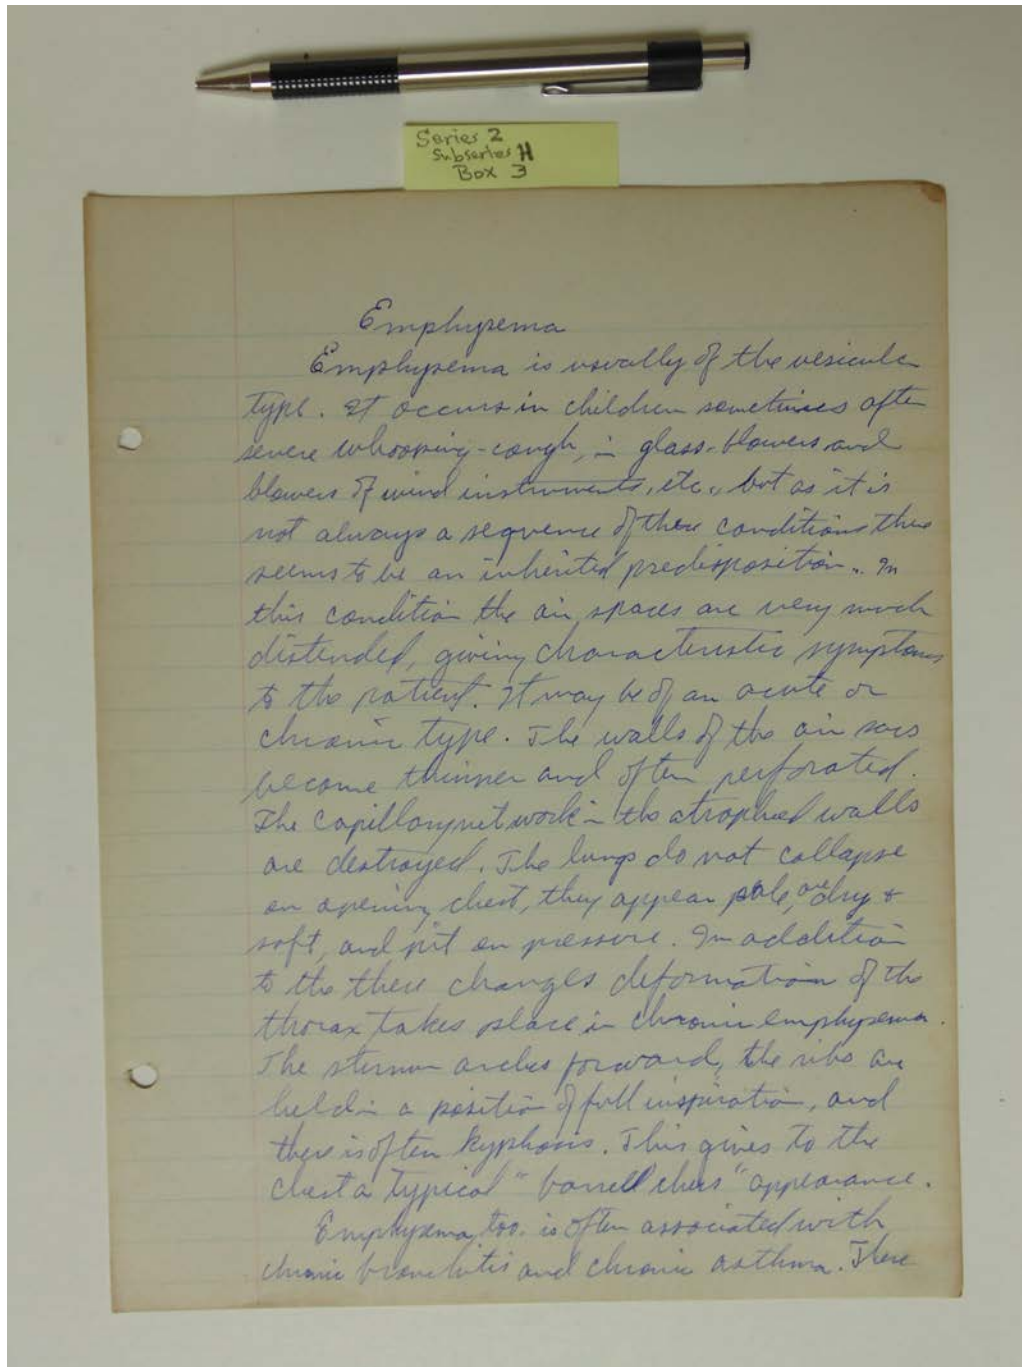 Series 2
Subseries H
Box 3
Emphysema
Emphysema is usually of the vesicular
type. It occurs in children sometimes after
severe whooping-cough, in glass-blowers and
blowers of wind instruments, etc., but as it is
not always a sequence of these conditions there
seems to be an inherited predisposition. In
this condition the air spaces are very much
distended, giving characteristic symptoms
to the patient. It may be of an acute or
chronic type. The walls of the air sacs
become thinner and often perforated.
The capillary network in the atrophied walls
are destroyed. The lungs do not collapse
on opening chest, they appear pale, are dry &
soft, and pit on pressure. In addition
to the these changes deformation of the
thorax takes place in chronic emphysema.
The sternum arches forward, the ribs are
held in a position of full inspiration, and
there is often kyphosis. This gives to the
chest a typical "barrell ches" appearance.
Emphysema, too. is often associated with
chronic bronchitis and chronic asthma. There